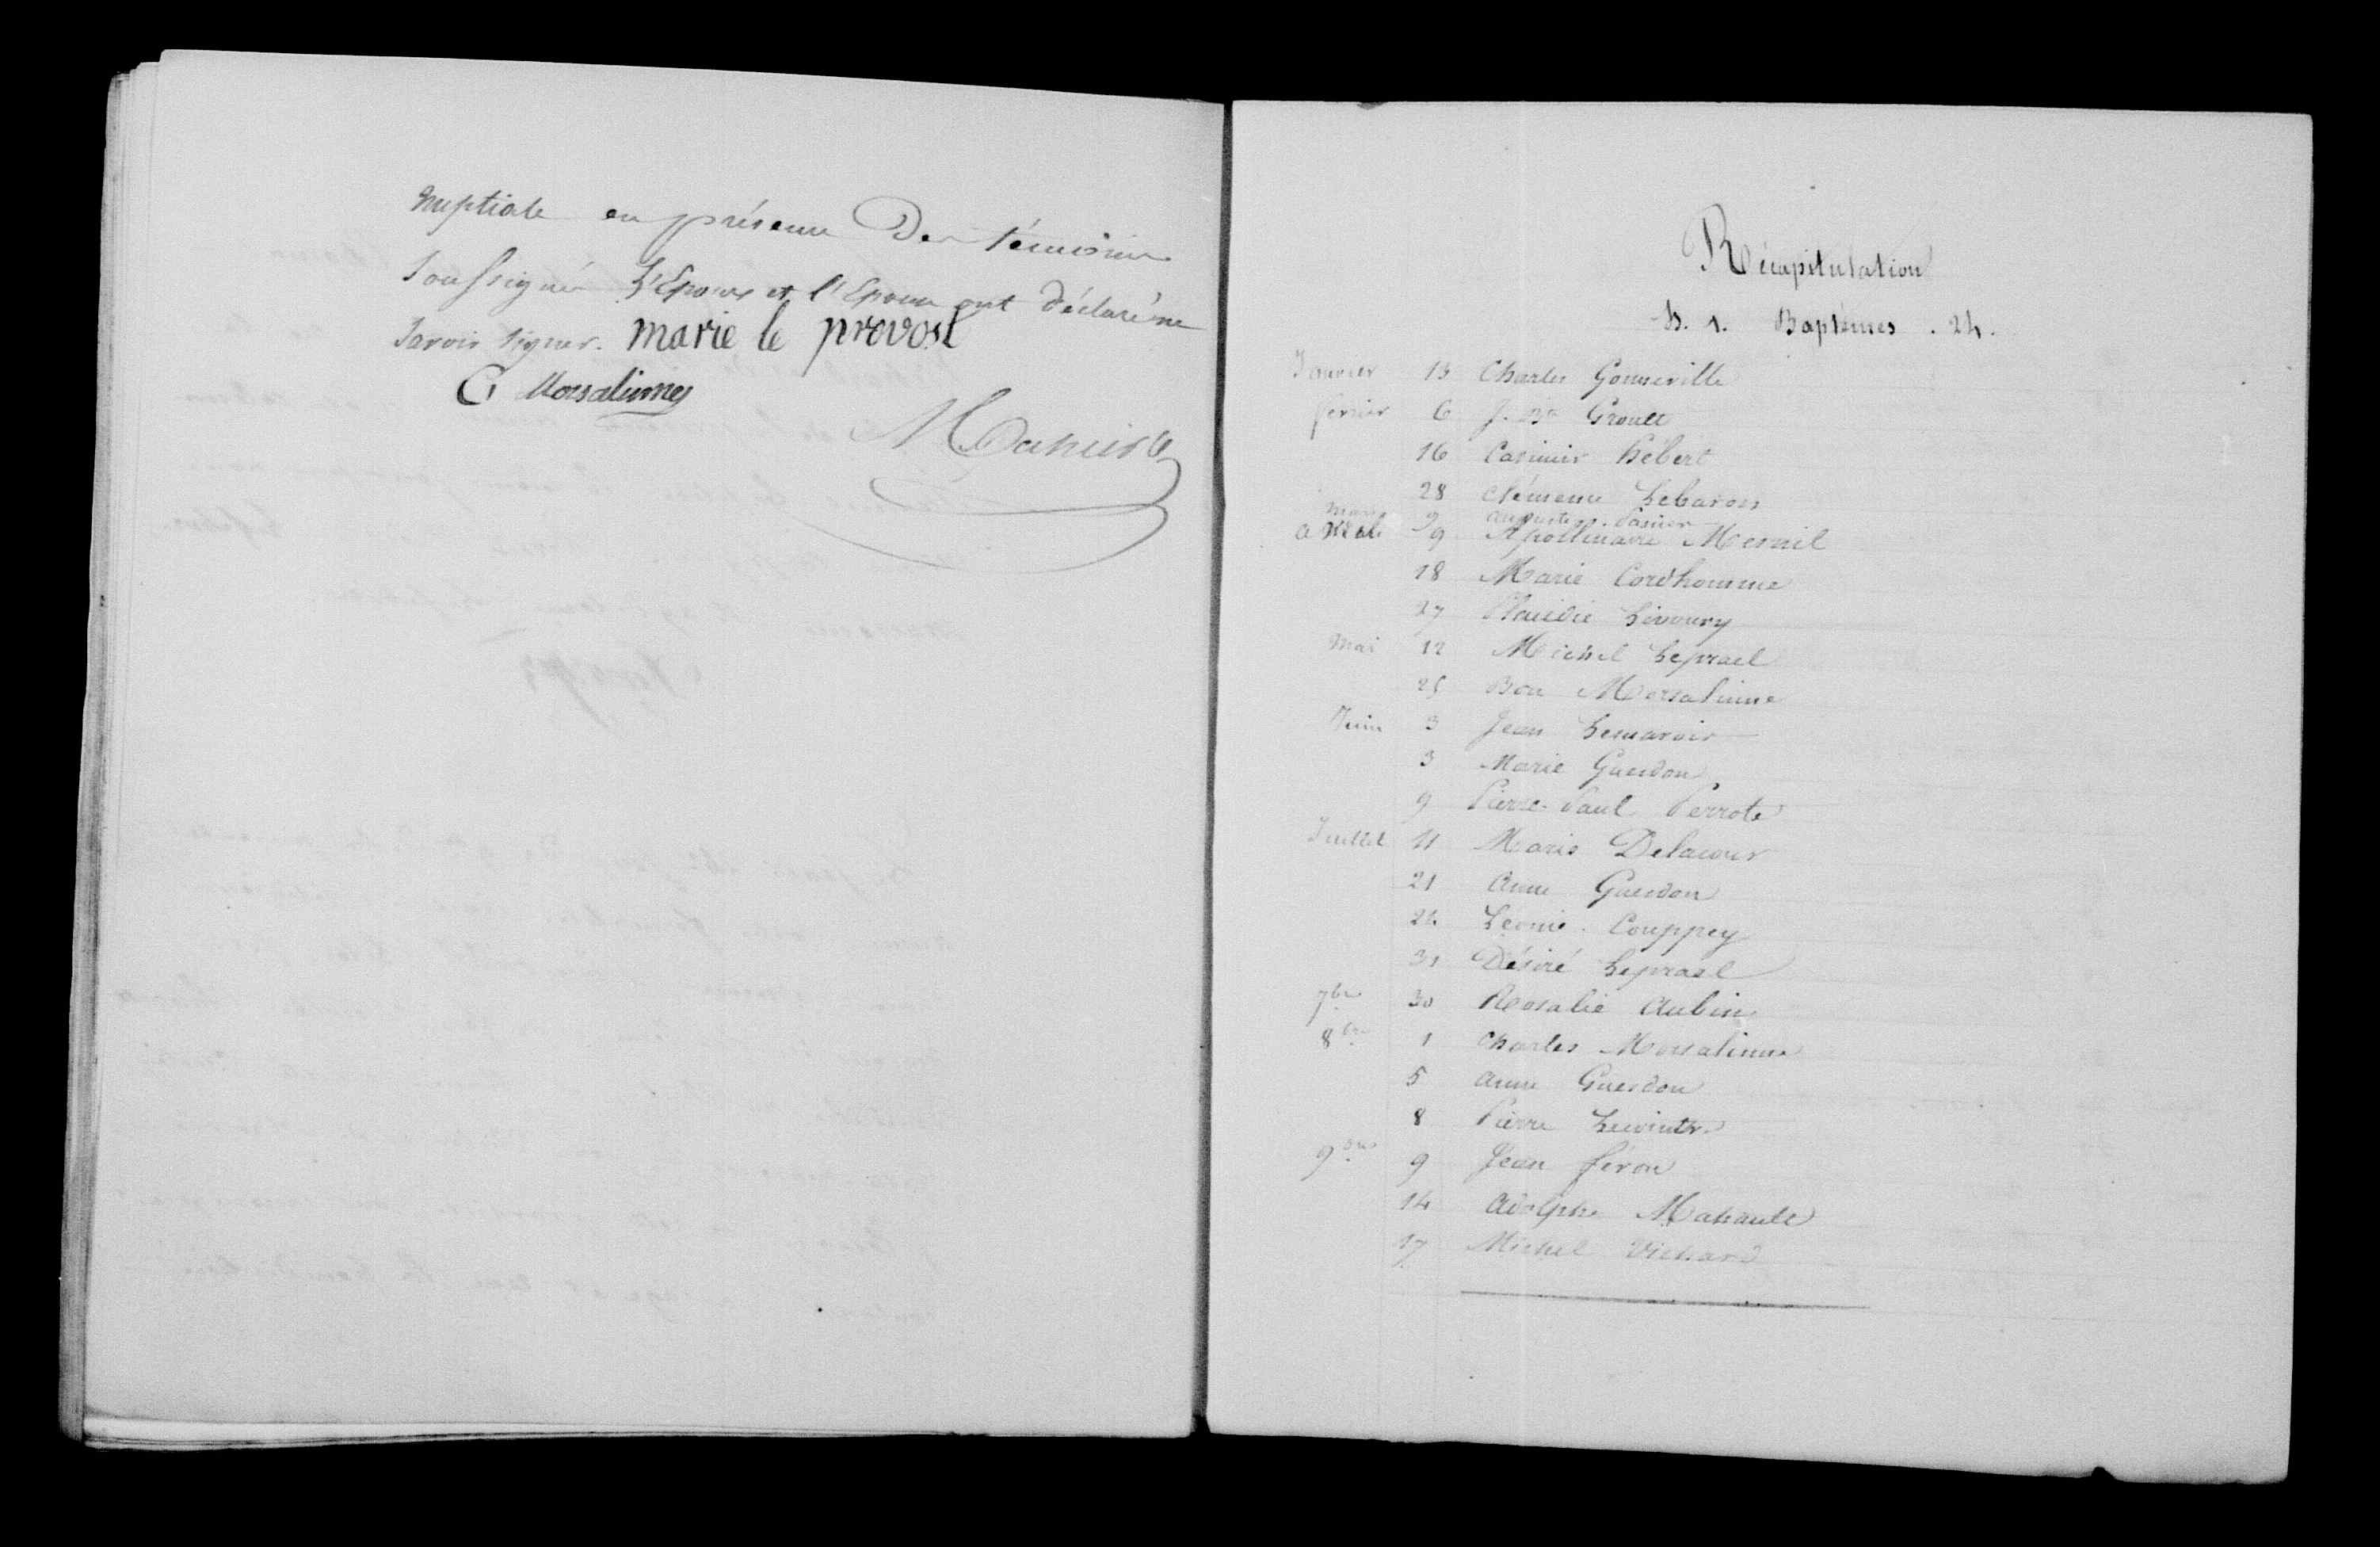 nuptiale en présence Des témoins
soussignés L'Epoux et l'Epouse ont déclaré ne
savoir signer. marie le provost
C Morsalinnes
Récapitulation
§. 1. Baptêmes . 24.
Janvier 13 Charles Gonneville
février 6 J. Bte Groult
16 Casimir Hébert
28 Clémence Lebaron
mars 9 augustine
avril 9 Apollinaire Mesnil
18 Marie Cordhomme
27 Placidie
Mai 12 Michel Leprael
25 Bon Morsalinne
Juin 3 Jean Lemarois
3 Marie Guerdon
9 Pierre-Paul Perrote
Juillet 11 Marie Delacour
21 Anne Guerdon
24 Léonie Couppey
31 Désiré Leprael
7bre 30 Rosalie Aubin
8bre 1 Charles Morsalinne
5 anne Guerdon
8 Pierre
9bre 9 Jean féron
14 Adolphe Mahault
17 Michel Vichard